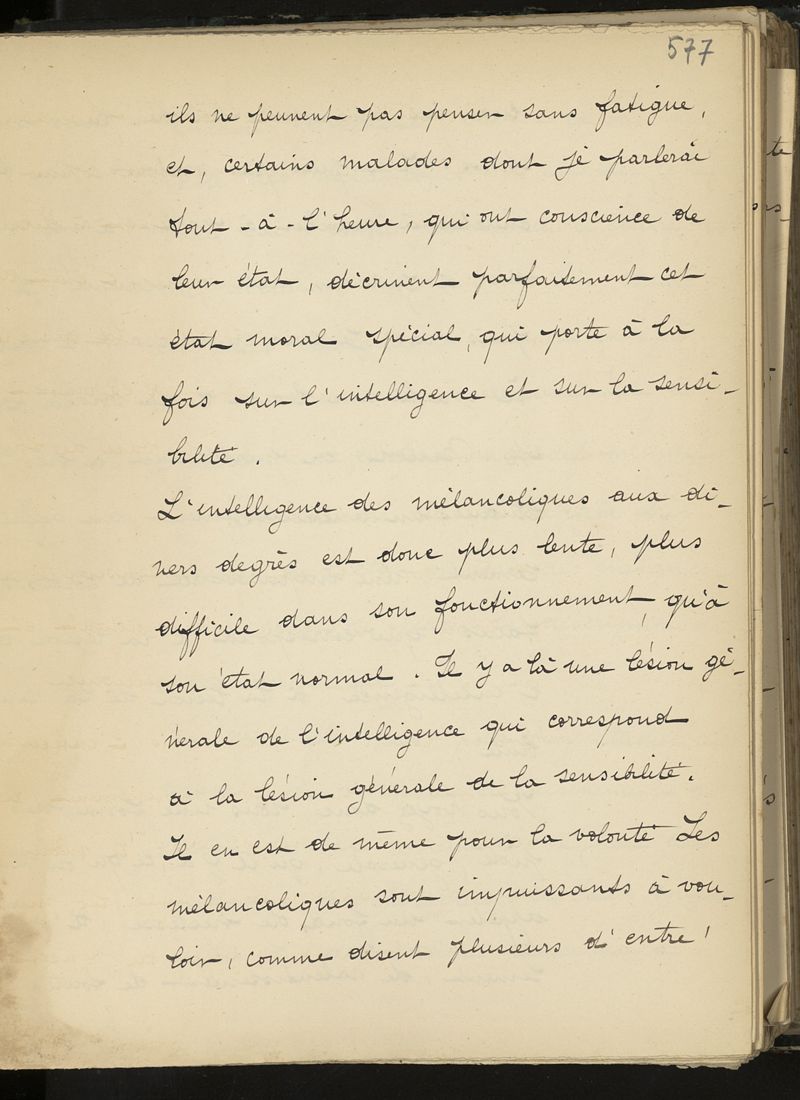 577
ils ne peuvent pas penser sans fatigue,
et, certains malades dont je parlerai
tout-à-l'heure, qui ont conscience de
leur état, décrivent parfaitement cet
état moral spécial, qui porte à la
fois sur l'intelligence et sur la sensi-
bilité.
L'intelligence des mélancoliques aux di-
vers degrés est donc plus lente, plus
difficile dans son fonctionnement, qu'à
son état normal. Il y a là une lésion gé-
nérale de l'intelligence qui correspond
à la lésion générale de la sensibilité.
Il en est de même pour la volonté Les
mélancoliques sont impuissants à vou-
loir, comme disent plusieurs d'entre'